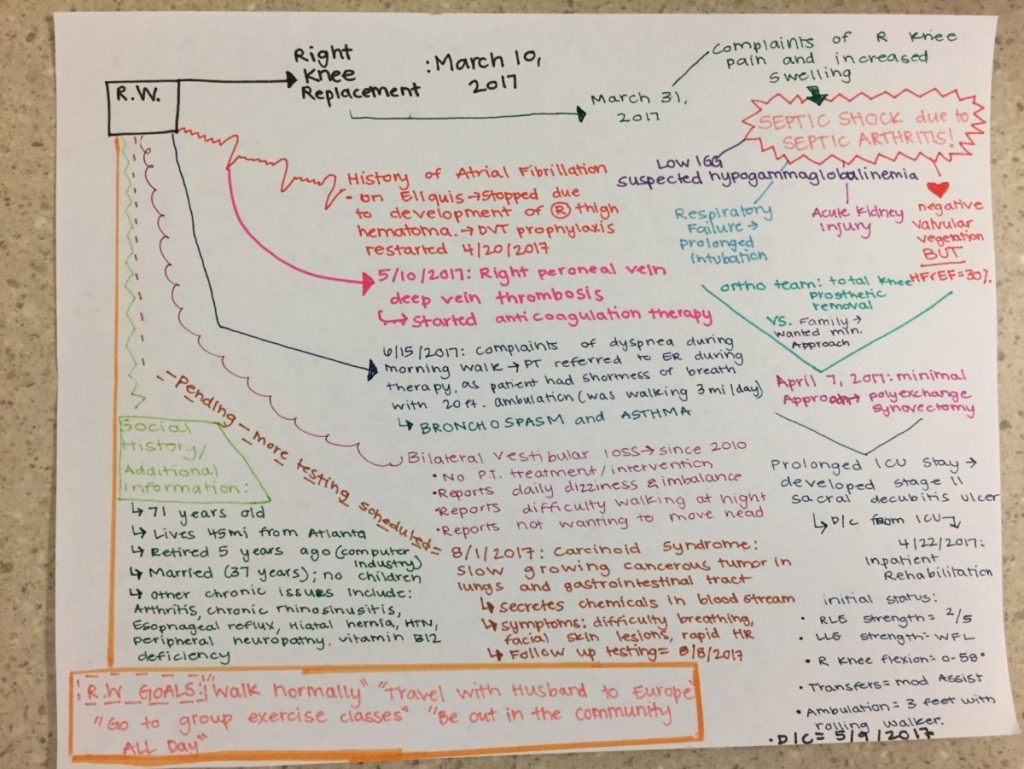 R.W.
Right
Knee
Replacement
: March 10,
2017
March 31,
2017
Complaints of R Knee
pain and increased
swelling
SEPTIC SHOCK due to
SEPTIC ARTHRITIS!
LOW IGG
suspected hypogammaglobalinemia
Respiratory
Failure →
prolonged
intubation
Acute Kidney
injury
negative
valvular
vegetation
BUT
HFrEF=30%
ortho team: total knee
prosthetic
removal
VS. Family →
wanted min.
Approach
April 7, 2017: minimal
Approach → polyexchange
synovectomy
Prolonged ICU stay →
developed stage II
sacral decubitis ulcer
↳ D/C from ICU
4/22/2017:
Inpatient
Rehabilitation
initial status:
• RLE strength = 2/5
• LLE strength = WFL
• R Knee flexion = 0-58°
• Transfers = mod Assist
• Ambulation = 3 feet with
rolling walker.
• D/C = 5/9/2017
History of Atrial Fibrillation
- on Eliquis → stopped due
to development of Ⓡ thigh
hematoma. → DVT prophylaxis
restarted 4/20/2017
5/10/2017: Right peroneal vein
deep vein thrombosis
↳ Started anticoagulation therapy
6/15/2017: complaints of dyspnea during
morning walk → PT referred to ER during
therapy, as patient had shortness of breath
with 20 ft. ambulation (was walking 3 mi/day)
↳ BRONCHOSPASM and ASTHMA
Bilateral vestibular loss → since 2010
• No P.T. treatment/intervention
• Reports daily dizziness & imbalance
• Reports difficulty walking at night
• Reports not wanting to move head
- Pending - more testing scheduled =
8/1/2017: Carcinoid Syndrome:
slow growing cancerous tumor in
lungs and gastrointestinal tract
↳ secretes chemicals in blood stream
↳ symptoms: difficulty breathing,
facial skin lesions, rapid HR
↳ Follow up testing = 8/8/2017
Social
History/
Additional
Information:
↳ 71 years old
↳ Lives 45mi from Atlanta
↳ Retired 5 years ago (computer
industry)
↳ Married (37 years); no children
↳ other chronic issues include:
Arthritis, chronic rhinosinusitis,
Esophageal reflux, Hiatal hernia, HTN,
peripheral neuropathy, vitamin B12
deficiency
R.W GOALS: "Walk normally" "Travel with Husband to Europe"
"Go to group exercise classes" "Be out in the community
ALL Day"